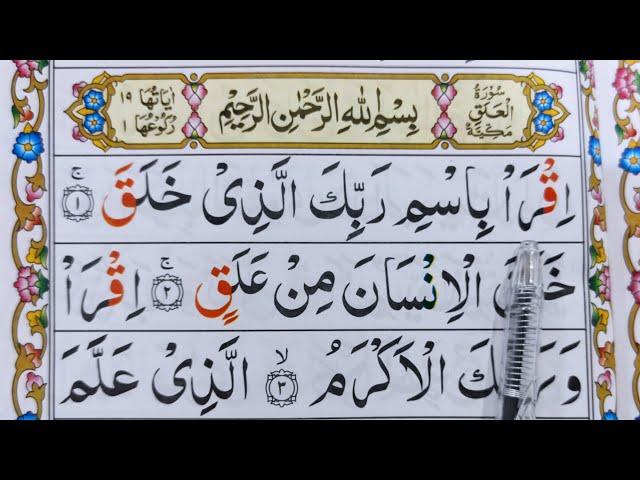 سُوْرَةُ الْعَلَقِ مَكِّيَّةٌ
بِسْمِ اللهِ الرَّحْمٰنِ الرَّحِيْمِ
اٰيَاتُهَا ١٩
رُكُوْعُهَا ١
اِقْرَاْ بِاسْمِ رَبِّكَ الَّذِىْ خَلَقَ ۚ ﴿١﴾
الْاِنْسَانَ مِنْ عَلَقٍ ۚ ﴿٢﴾ اِقْرَاْ
الْاَكْرَمُ ۙ ﴿٣﴾ الَّذِىْ عَلَّمَ